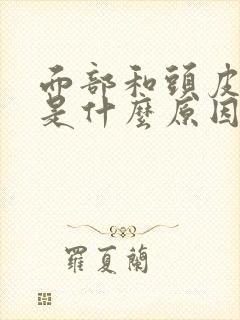 面部和頭皮
是什麼原因
羅夏蘭